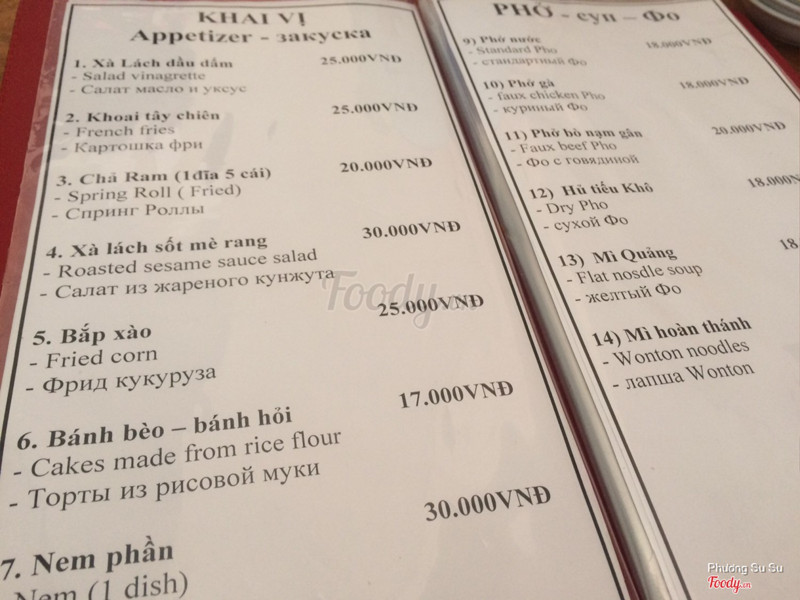 KHAI VỊ
Appetizer - закуска
1. Xà Lách dầu dấm 25.000VNĐ
- Salad vinagrette
- Салат масло и уксус
2. Khoai tây chiên 25.000VNĐ
- French fries
- Картошка фри
3. Chả Ram (1đĩa 5 cái) 20.000VNĐ
- Spring Roll ( Fried)
- Спринг Роллы
4. Xà lách sốt mè rang 30.000VNĐ
- Roasted sesame sauce salad
- Салат из жареного кунжута
5. Bắp xào 25.000VNĐ
- Fried corn
- Фрид кукуруза
6. Bánh bèo – bánh hỏi 17.000VNĐ
- Cakes made from rice flour
- Торты из рисовой муки
7. Nem phần 30.000VNĐ
Nem (1 dish)
PHỞ - суп – Фо
9) Phở nước 18.000VNĐ
- Standard Pho
- стандартный Фо
10) Phở gà 18.000VNĐ
- faux chicken Pho
- куриный Фо
11) Phở bò nạm gân 20.000VNĐ
- Faux beef Pho
- Фо с говядиной
12) Hủ tiếu Khô 18.000
- Dry Pho
- сухой Фо
13) Mì Quảng 18.
- Flat nosdle soup
- желтый Фо
14) Mì hoàn thánh
- Wonton noodles
- лапша Wonton
Foody.vn
Phương Su Su
Foody.vn